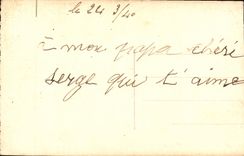 le 24 3/40
à mon papa chéri
serge qui t'aime